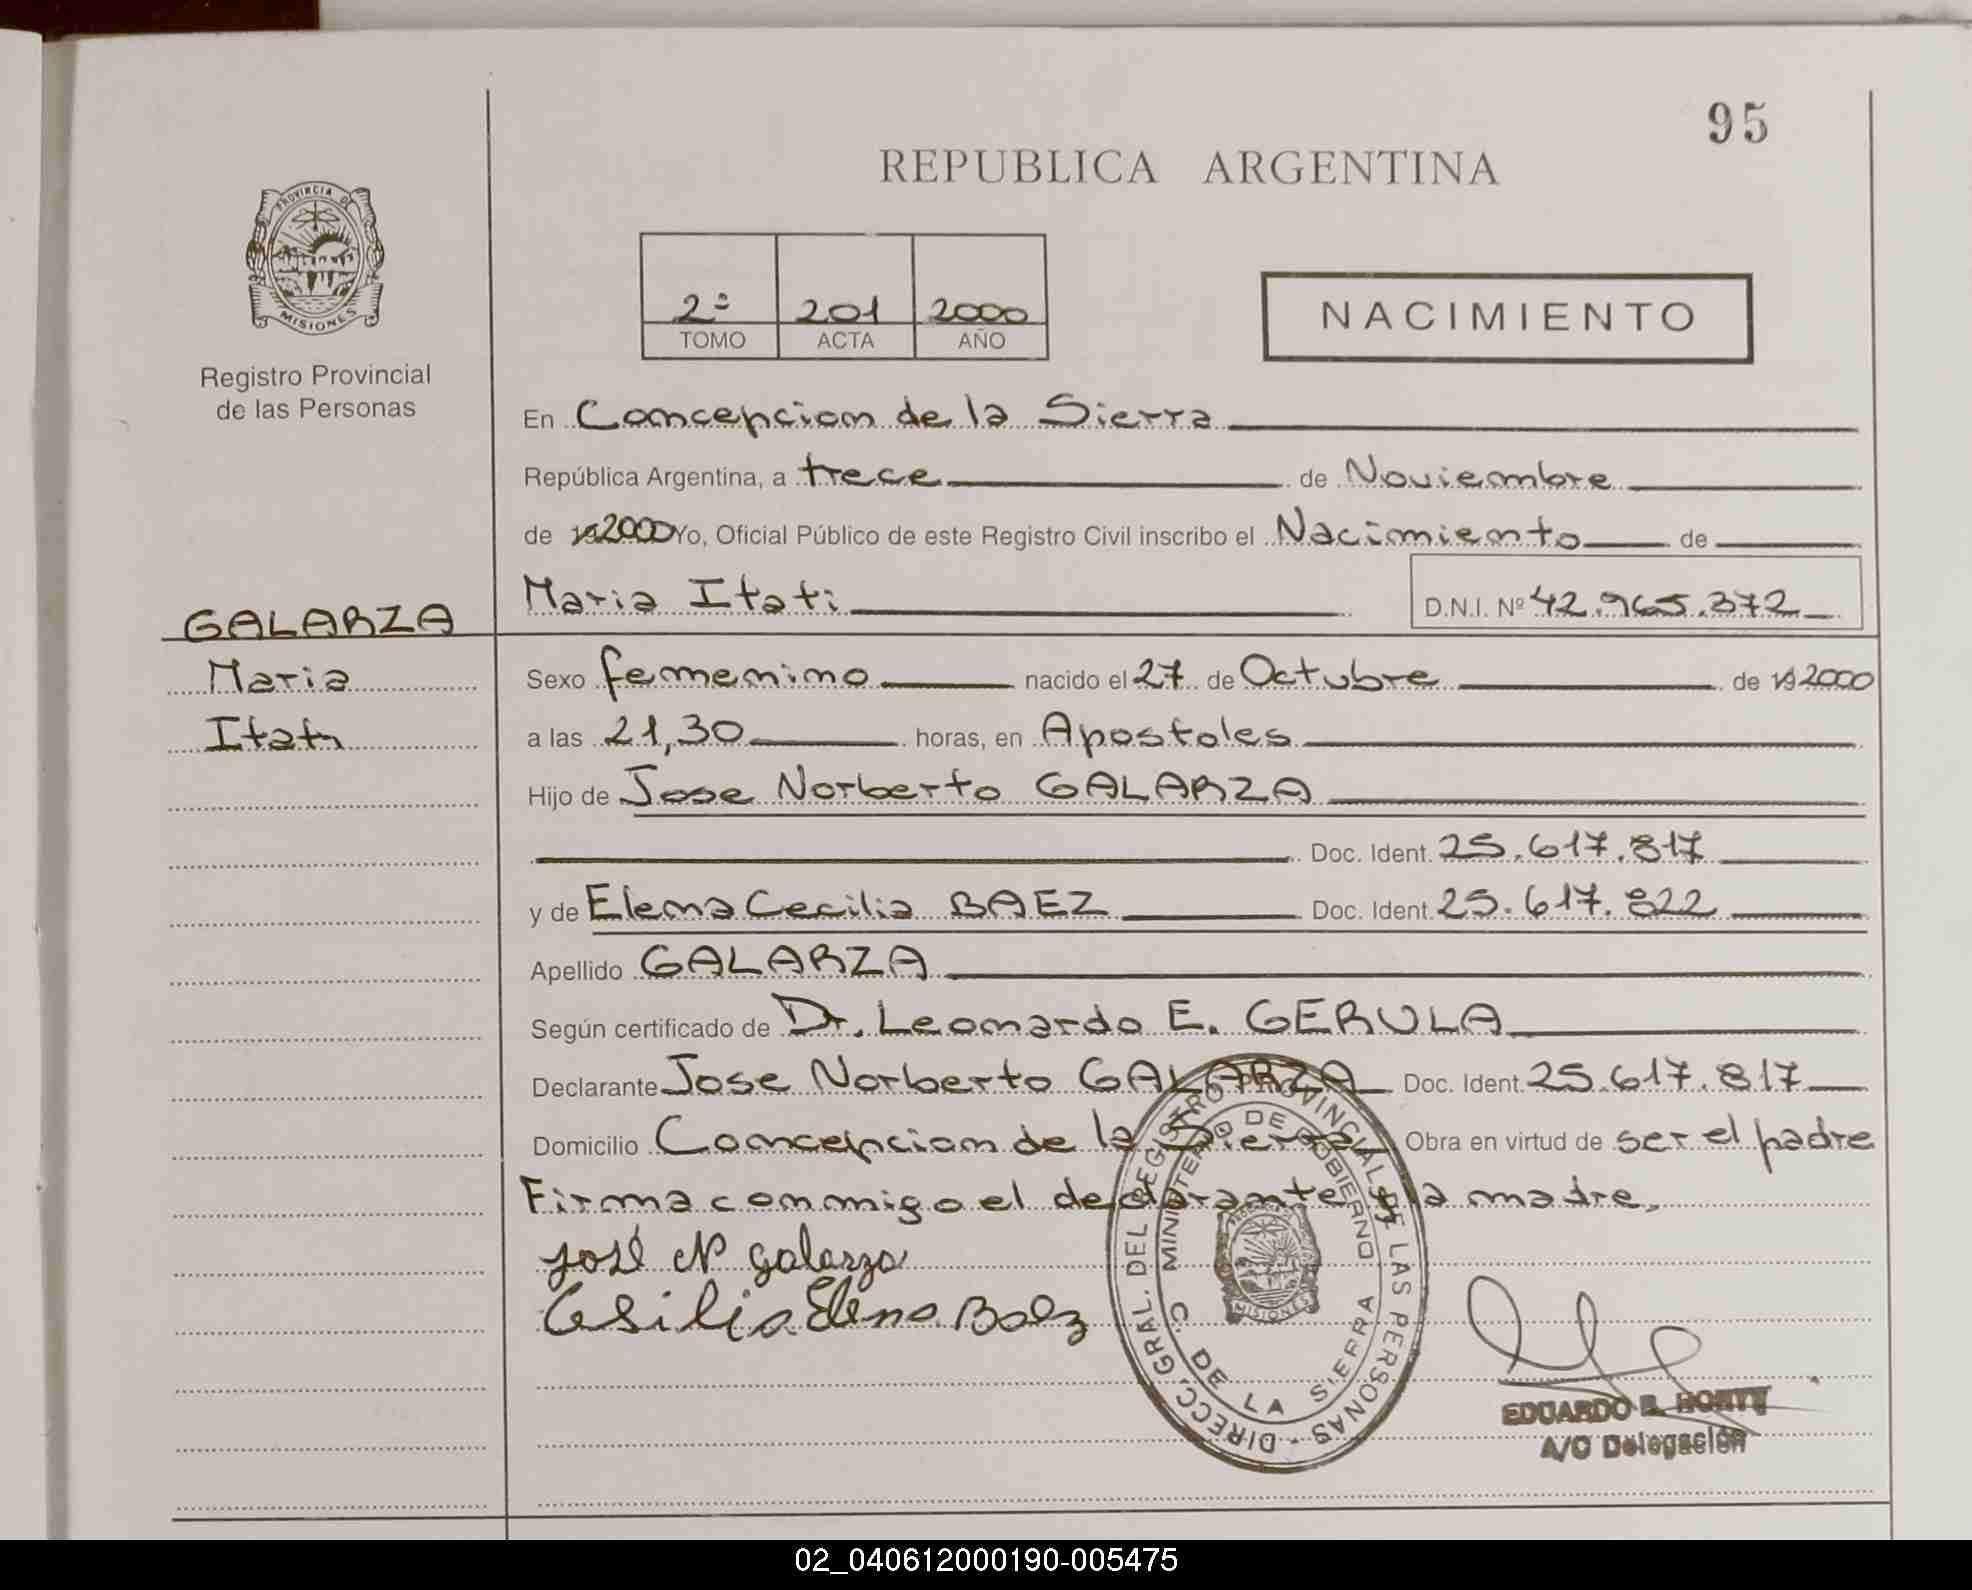 95
REPUBLICA ARGENTINA
PROVINCIA DE
MISIONES
Registro Provincial
de las Personas
2º 201 2000
TOMO ACTA AÑO
NACIMIENTO
En Concepcion de la Sierra
República Argentina, a trece de Noviembre
de 192000 Yo, Oficial Público de este Registro Civil inscribo el Nacimiento de
Maria Itati D.N.I. Nº 42.965.372
GALARZA
Maria
Itati
Sexo femenino nacido el 27 de Octubre de 192000
a las 21,30 horas, en Apostoles
Hijo de Jose Norberto GALARZA
Doc. Ident. 25.617.817
y de Elena Cecilia BAEZ Doc. Ident. 25.617.822
Apellido GALARZA
Según certificado de Dr. Leonardo E. GERULA
Declarante Jose Norberto GALARZA Doc. Ident. 25.617.817
Domicilio Concepcion de la Sierra Obra en virtud de ser el padre
Firma conmigo el declarante y la madre.
José N Galarza
Cesilia Elena Baez
DIRECC. GRAL. DEL REGISTRO PROVINCIAL DE LAS PERSONAS
MINISTERIO DE GOBIERNO
C. DE LA SIERRA
MISIONES
EDUARDO
A/C Delegación
02_040612000190-005475